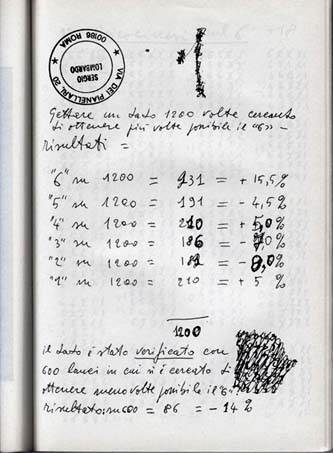 VIA DEI PIANELLARI, 20 * 00186 ROMA
SERGIO
LOMBARDO
1
Gettare un dado 1200 volte cercando
di ottenere più volte possibile il "6" -
risultati =
"6" su 1200 = 231 = + 15,5%
"5" su 1200 = 191 = - 4,5%
"4" su 1200 = 210 = + 5,0%
"3" su 1200 = 186 = - 7,0%
"2" su 1200 = 182 = - 9,0%
"1" su 1200 = 210 = + 5 %
1200
il dado è stato verificato con
600 lanci in cui si è cercato di
ottenere meno volte possibile il "6".
risultato: su 600 = 86 = - 14 %